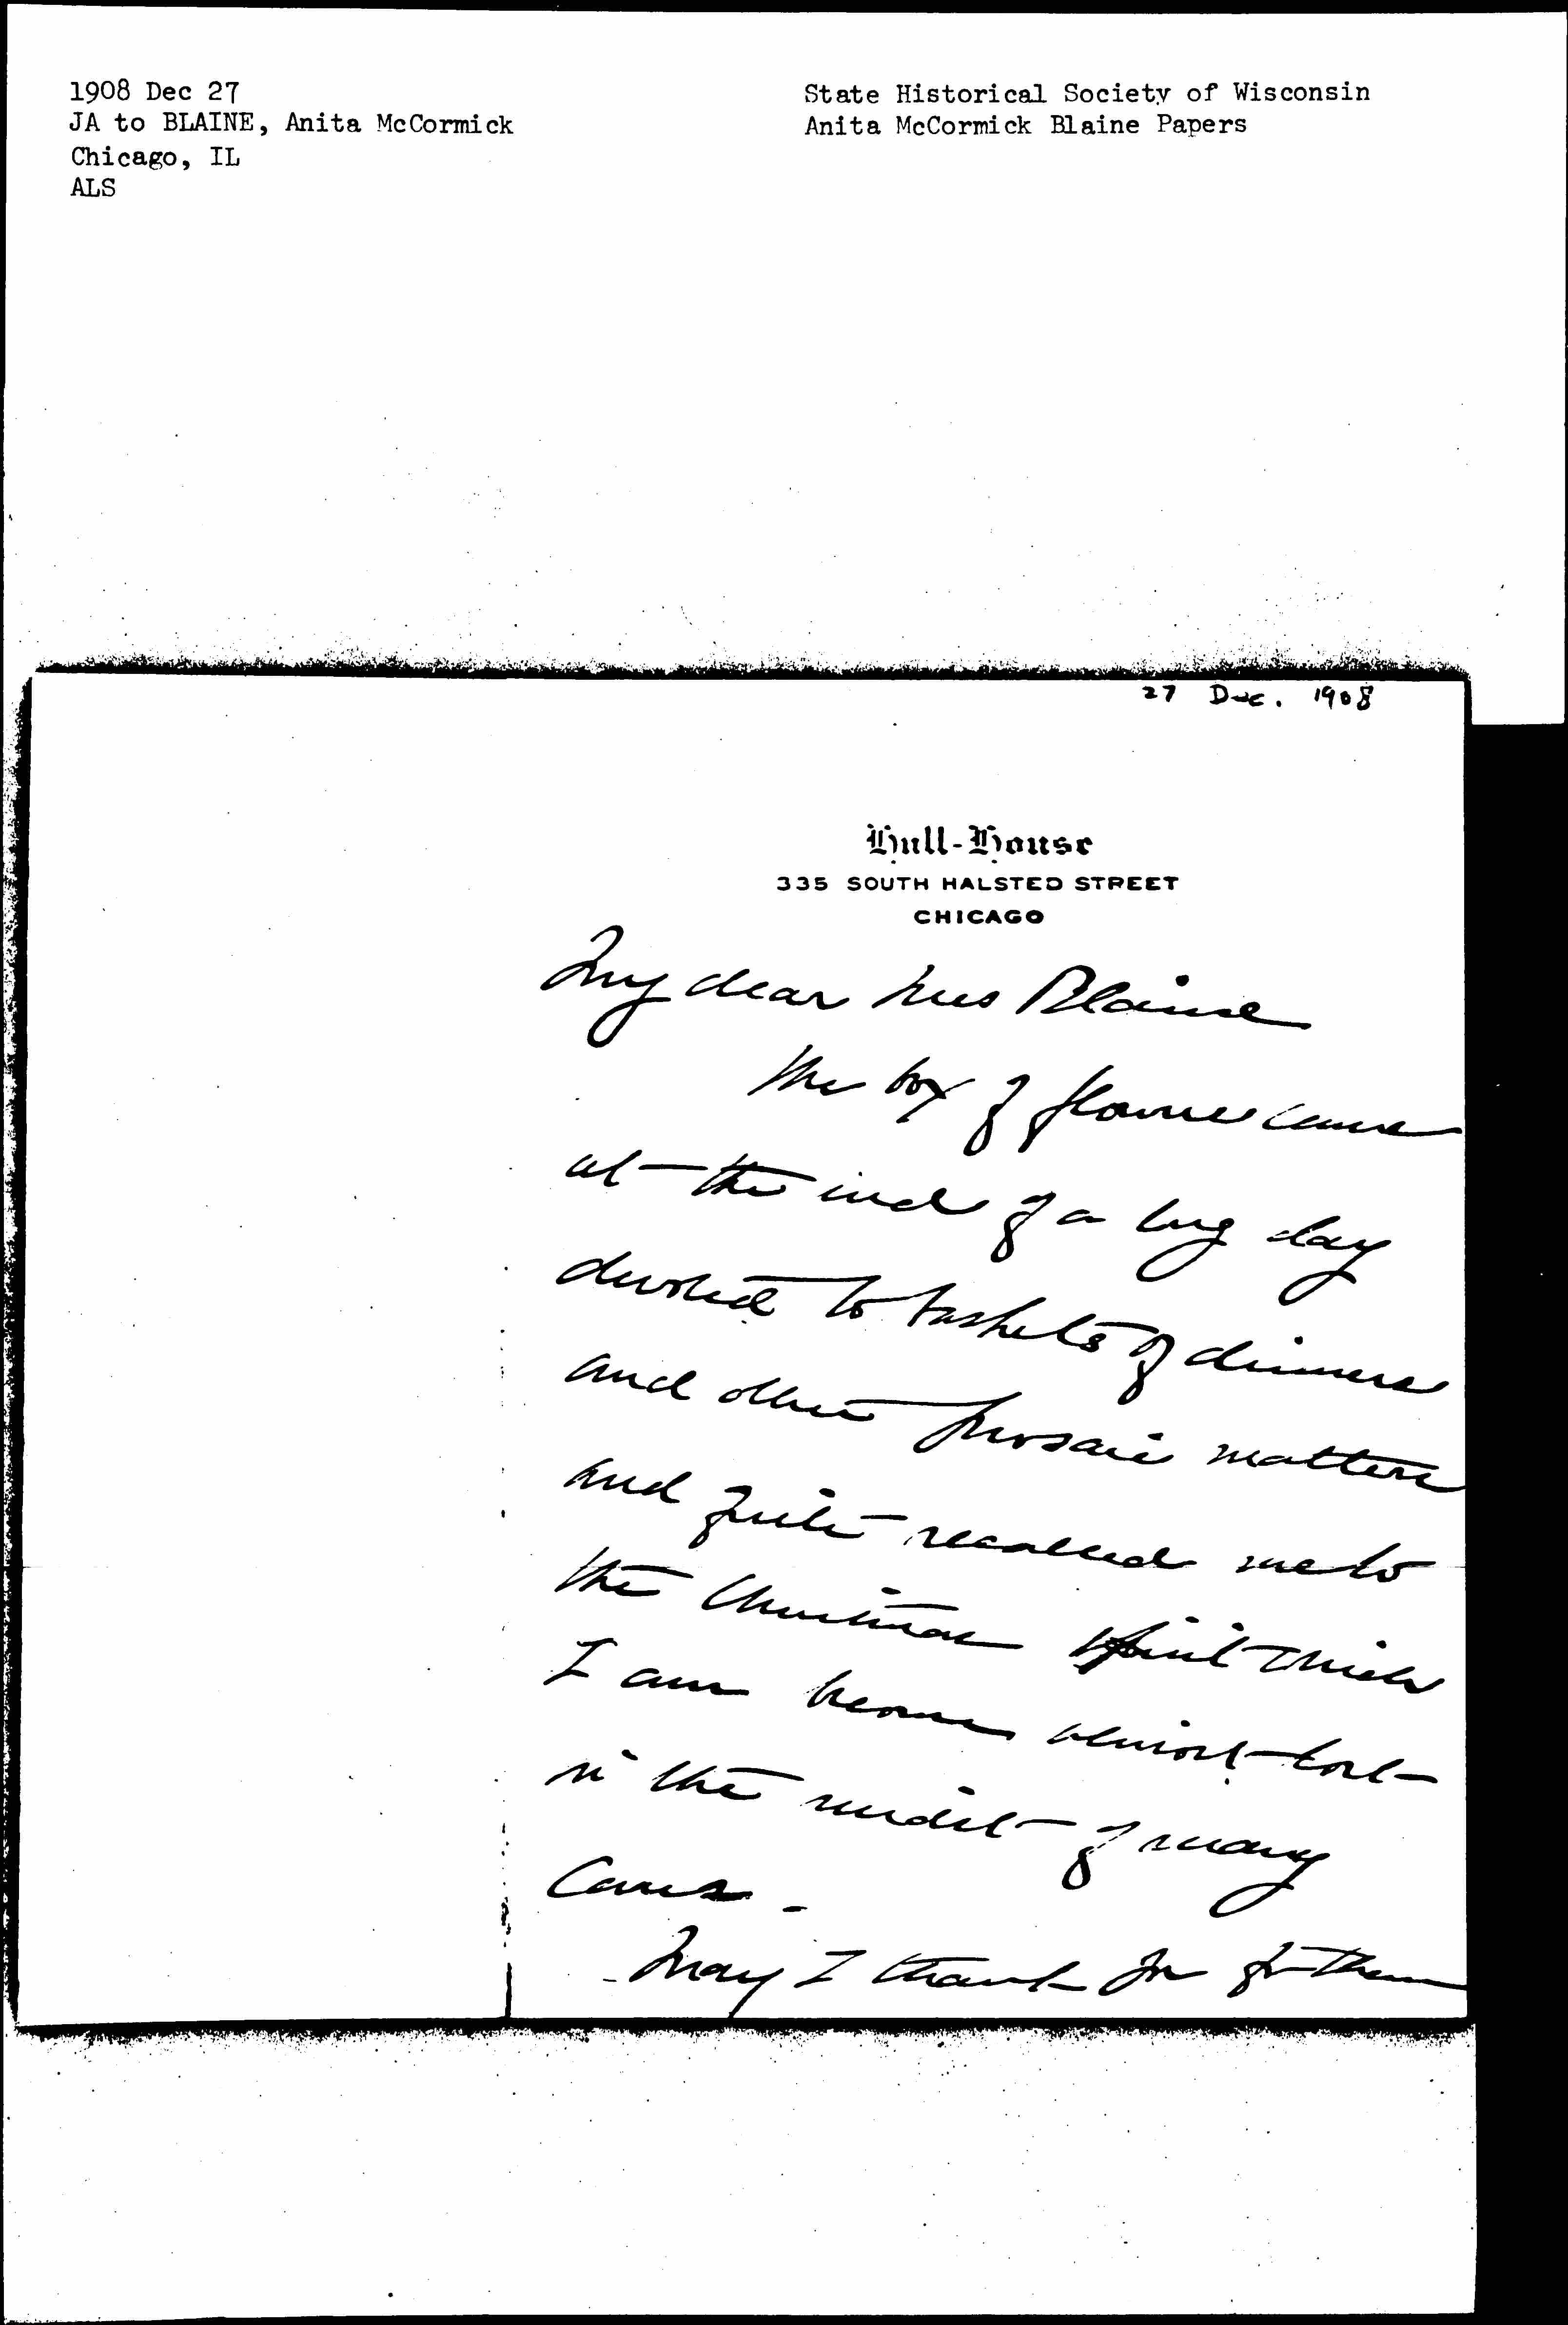 1908 Dec 27
JA to BLAINE, Anita McCormick
Chicago, IL
ALS
State Historical Society of Wisconsin
Anita McCormick Blaine Papers
27 Dec. 1908
Hull-House
335 SOUTH HALSTED STREET
CHICAGO
My dear Mrs Blaine
The box of flowers came
at the end of a long day
devoted to baskets of dinners
and other prosaic matters
and quite recalled me to
the Christmas spirit which
I am become almost lost
in the midst of many
cares.
May I thank you for them